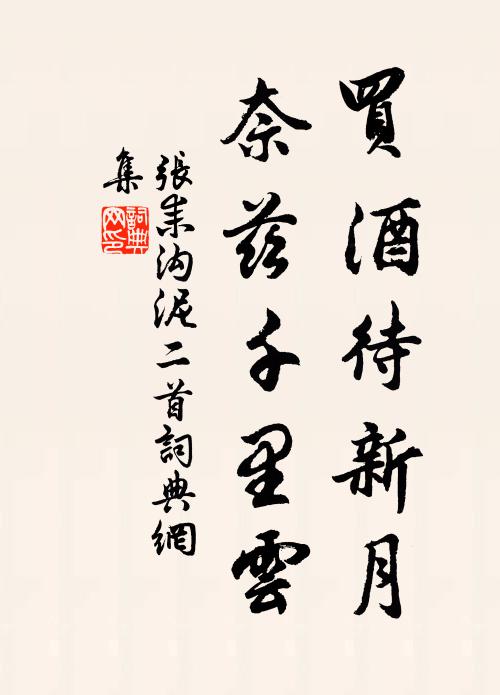 買酒待新月
奈茲千里雲
張耒沟泥二首詞典網
集
詞典网印